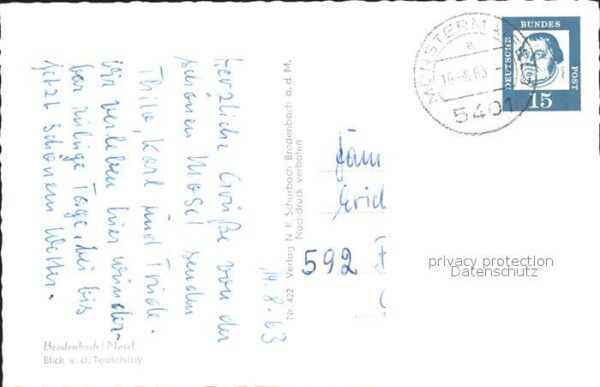 herzliche Grüße von der
schönen Mosel senden
Thilo, Karl und Trude.
Wir verleben hier wunder-
bar ruhige Tage, bei bis
jetzt schönem Wetter.
14.8.63
Brodenbach/Mosel
Blick v. d. Teufelslay
Nr. 422 Verlag N P. Schurbach Brodenbach a. d. M.
Nachdruck verboten
MÜNSTERMA
a
5401
DEUTSCHE
BUNDES
POST
15
Fam
Erid
592
privacy protection
Datenschutz